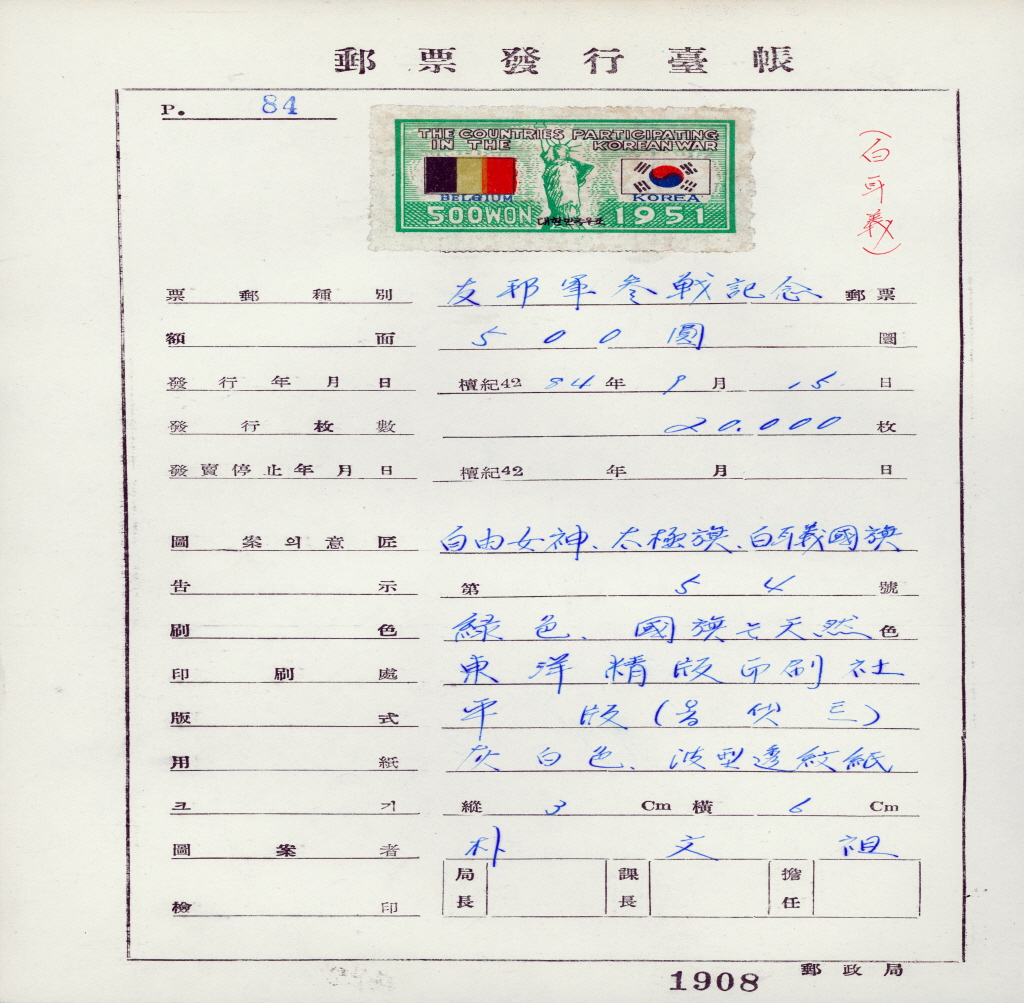 郵票發行臺帳
P. 84
THE COUNTRIES PARTICIPATING
IN THE KOREAN WAR
BELGIUM KOREA
500WON 대한민국우표 1951
(白耳義)
票郵種別 友邦軍参戦記念 郵票
額面 500圓 圜
發行年月日 檀紀4284年9月15日
發行枚數 20.000枚
發賣停止年月日 檀紀42 年 月 日
圖案의意匠 自由女神、太極旗、白耳義國旗
告示 第54號
刷色 綠色、國旗는天然色
印刷處 東洋精版印刷社
版式 平版(옵셋트)
用紙 灰白色、波型透紋紙
크기 縱3Cm橫6Cm
圖案者 朴文祖
檢印 局長 課長 擔任
1908 郵政局